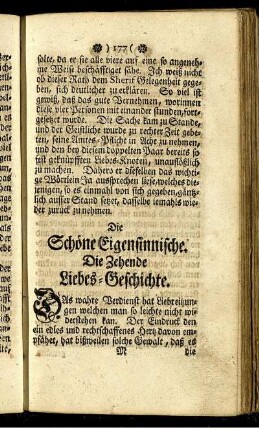 ) 177 (
solte, da er sie alle viere auf eine so angeneh-
me Weise beschäfftiget sähe. Ich weiß nicht
ob dieser Rath dem Sherif Gelegenheit gege-
ben, sich deutlicher zu erklären. So viel ist
gewiß, daß das gute Vernehmen, worinnen
diese vier Personen mit einander stunden, fort-
gesetzet wurde. Die Sache kam zu Stande,
und der Geistliche wurde zu rechter Zeit gebe-
ten, seine Amtes-Pflicht in Acht zu nehmen,
und den bey diesem doppelten Paar bereits so
fest geknüpfften Liebes-Knoten, unauflößlich
zu machen. Dahero er dieselben das wichti-
ge Wörtlein Ja aussprechen liese, welches die-
jenigen, so es einmahl von sich gegeben, gäntz-
lich ausser Stand setzet, dasselbe iemahls wie-
der zurück zu nehmen.
Die
Schöne Eigensinnische.
Die Zehende
Liebes-Geschichte.
DAs wahre Verdienst hat Liebreitzun-
gen welchen man so leichte nicht wi-
derstehen kan. Der Eindruck den
ein edles und rechtschaffenes Hertz davon em-
pfähet, hat bißweilen solche Gewalt, daß es
M die